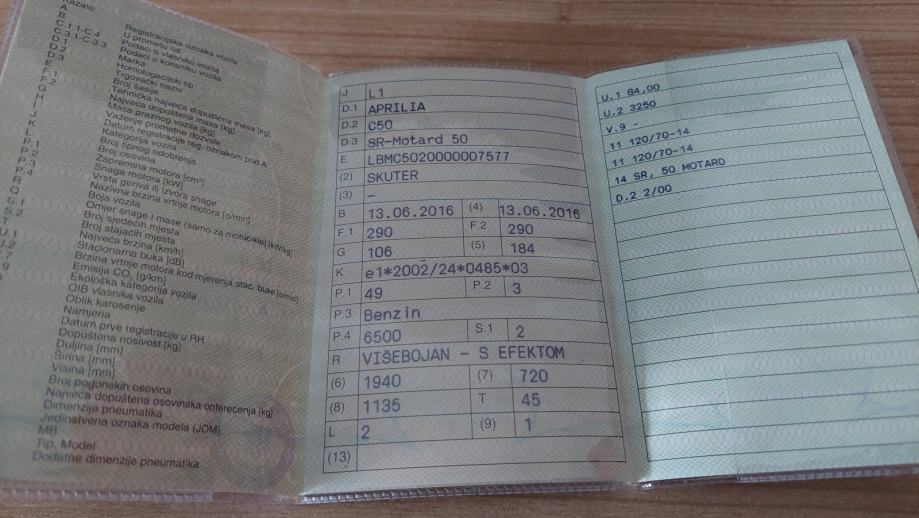 Kazalo:
A
B
C.1.1-C.4
C.3.1-C.3.3
D.1
D.2
D.3
E
F.1
F.2
G
H
I
J
K
L
P.1
P.2
P.3
P.4
R
Q
S.1
S.2
T
U.1
Registracijska oznaka vozila
U prometu od
Podaci o vlasniku vozila
Podaci o korisniku vozila
Marka
Homologacijski tip
Trgovački naziv
Broj šasije
Tehnička najveća dopuštena masa [kg]
Najveća dopuštena masa [kg]
Masa praznog vozila [kg]
Važenje prometne dozvole
Datum registracije reg. oznakom pod A
Kategorija vozila
Broj tipnog odobrenja
Broj osovina
Zapremina motora [cm³]
Snaga motora [kW]
Vrsta goriva ili izvora snage
Nazivna brzina vrtnje motora [o/min]
Boja vozila
Omjer snage i mase (samo za motocikle) [kW/kg]
Broj sjedećih mjesta
Broj stajaćih mjesta
Najveća brzina [km/h]
Stacionarna buka [dB]
Brzina vrtnje motora kod mjerenja stac. buke [o/min]
Emisija CO₂ [g/km]
Ekološka kategorija vozila
OIB vlasnika vozila
Oblik karoserije
Namjena
Datum prve registracije u RH
Dopuštena nosivost [kg]
Duljina [mm]
Širina [mm]
Visina [mm]
Broj pogonskih osovina
Najveća dopuštena osovinska opterećenja [kg]
Dimenzije pneumatika
Jedinstvena oznaka modela (JOM)
MB
Tip, Model
Dodatne dimenzije pneumatika
J L1
D.1 APRILIA
D.2 C50
D.3 SR-Motard 50
E LBMC5020000007577
(2) SKUTER
(3) –
B 13.06.2016 (4) 13.06.2016
F.1 290 F.2 290
G 106 (5) 184
K e1*2002/24*0485*03
P.1 49 P.2 3
P.3 Benzin
P.4 6500 S.1 2
R VIŠEBOJAN - S EFEKTOM
(6) 1940 (7) 720
(8) 1135 T 45
L 2 (9) 1
(13)
U.1 84,00
U.2 3250
V.9 -
11 120/70-14
11 120/70-14
14 SR, 50 MOTARD
D.2 2/00